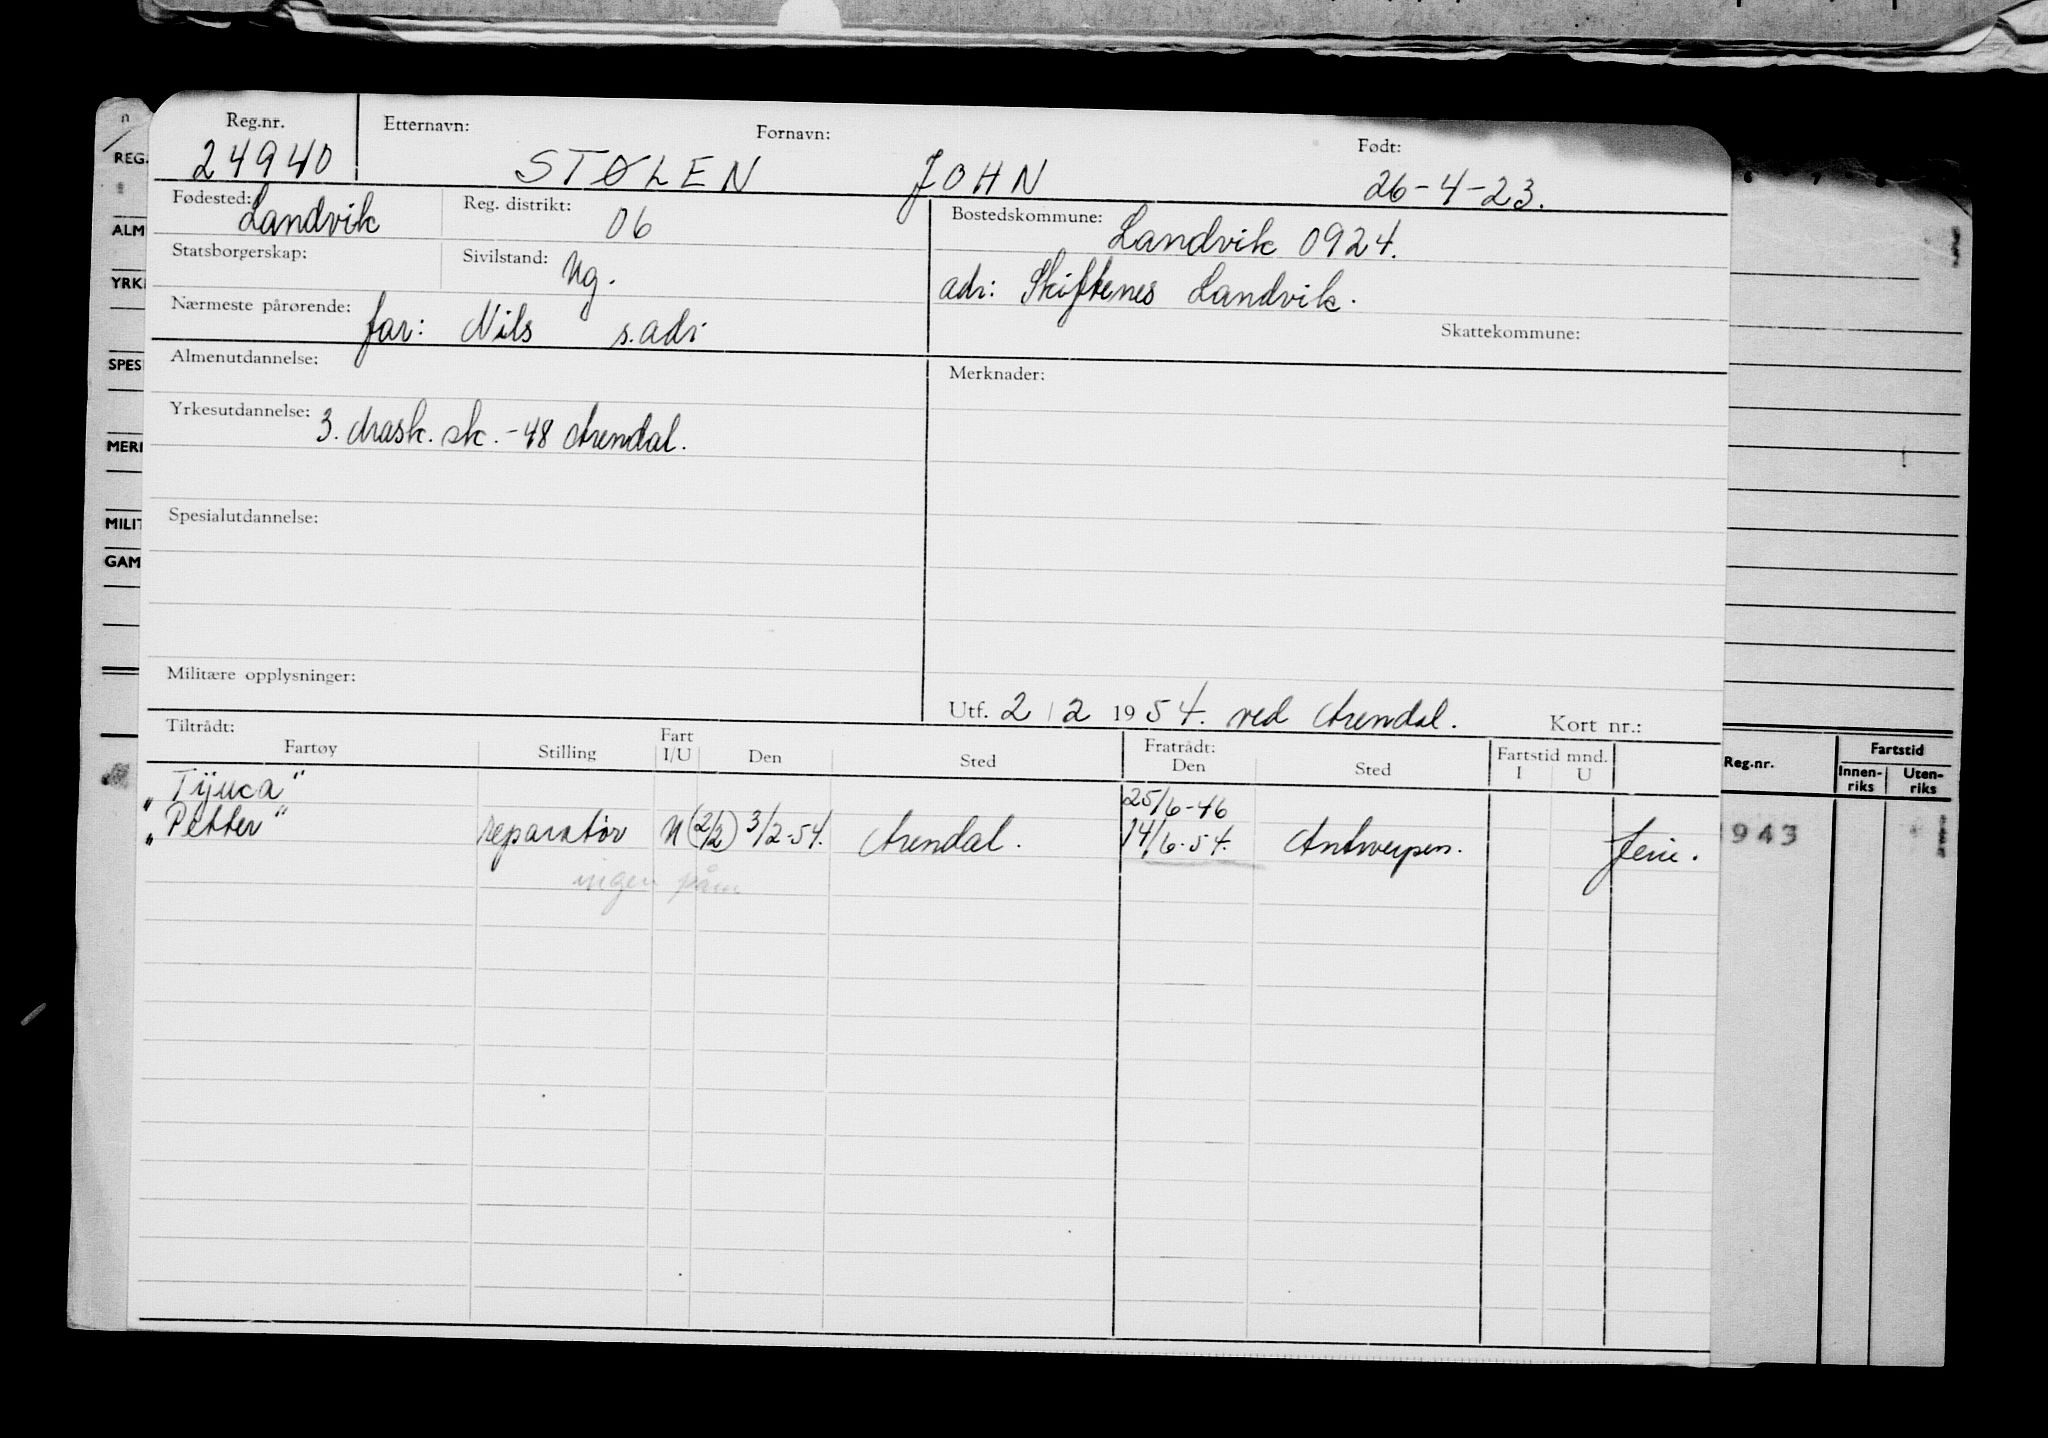 Reg.nr. Etternavn: Fornavn: Født:
24940 STØLEN JOHN 26-4-23.
Fødested: Landvik Reg. distrikt: 06 Bostedskommune: Landvik 0924.
Statsborgerskap: Sivilstand: Ug. adr: Skiftenes Landvik.
Nærmeste pårørende: far: Nils s.adr Skattekommune:
Almenutdannelse: Merknader:
Yrkesutdannelse: 3. mask. sk. -48 Arendal.
Spesialutdannelse:
Militære opplysninger:
Utf. 2/2 1954. ved Arendal. Kort nr.:
Tiltrådt: Fratrådt:
Fartøy Stilling Fart I/U Den Sted Den Sted Fartstid mnd. I U
"Tijuca" 25/6-46
"Petter" reparatør U (2/2) 3/2-54. Arendal. 14/6-54. Antwerpen. ferie.
ingen
REG.
ALM
YRK
SPES
MER
MILIT
GAM
Reg.nr. Fartstid
Innen-riks Uten-riks
1943